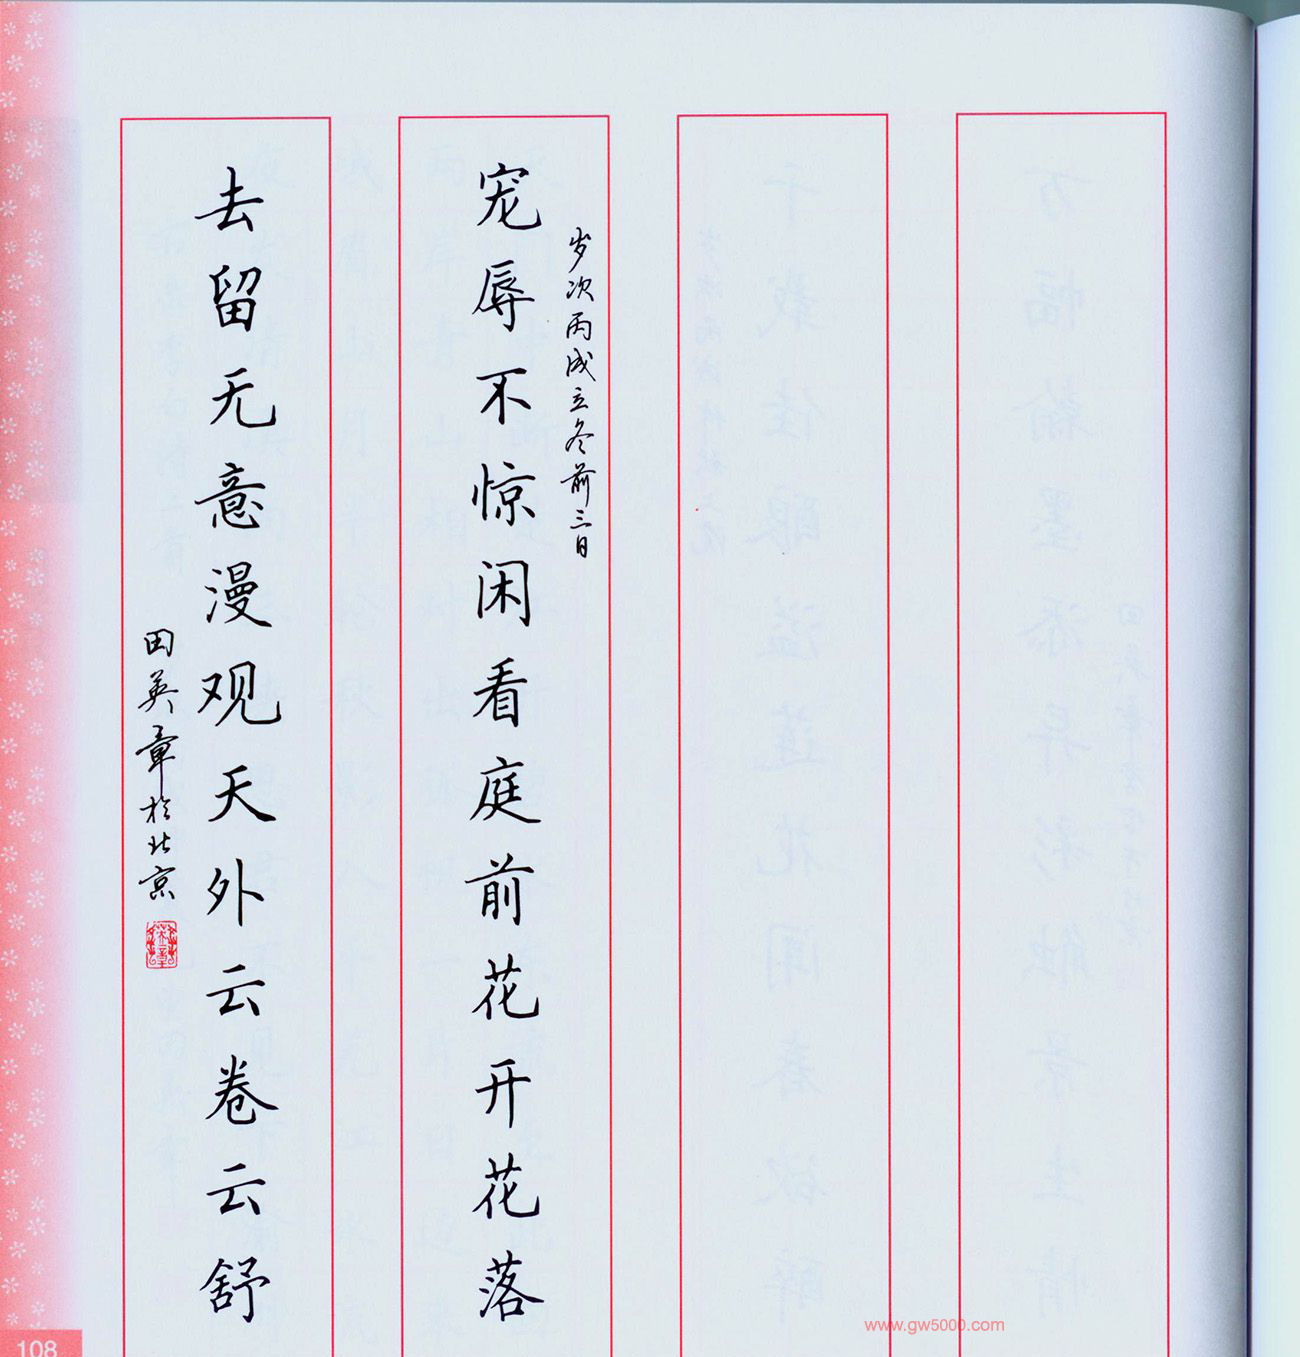 岁次丙戌立冬前三日
宠辱不惊闲看庭前花开花落
去留无意漫观天外云卷云舒
田英章于北京
108
www.gw5000.com